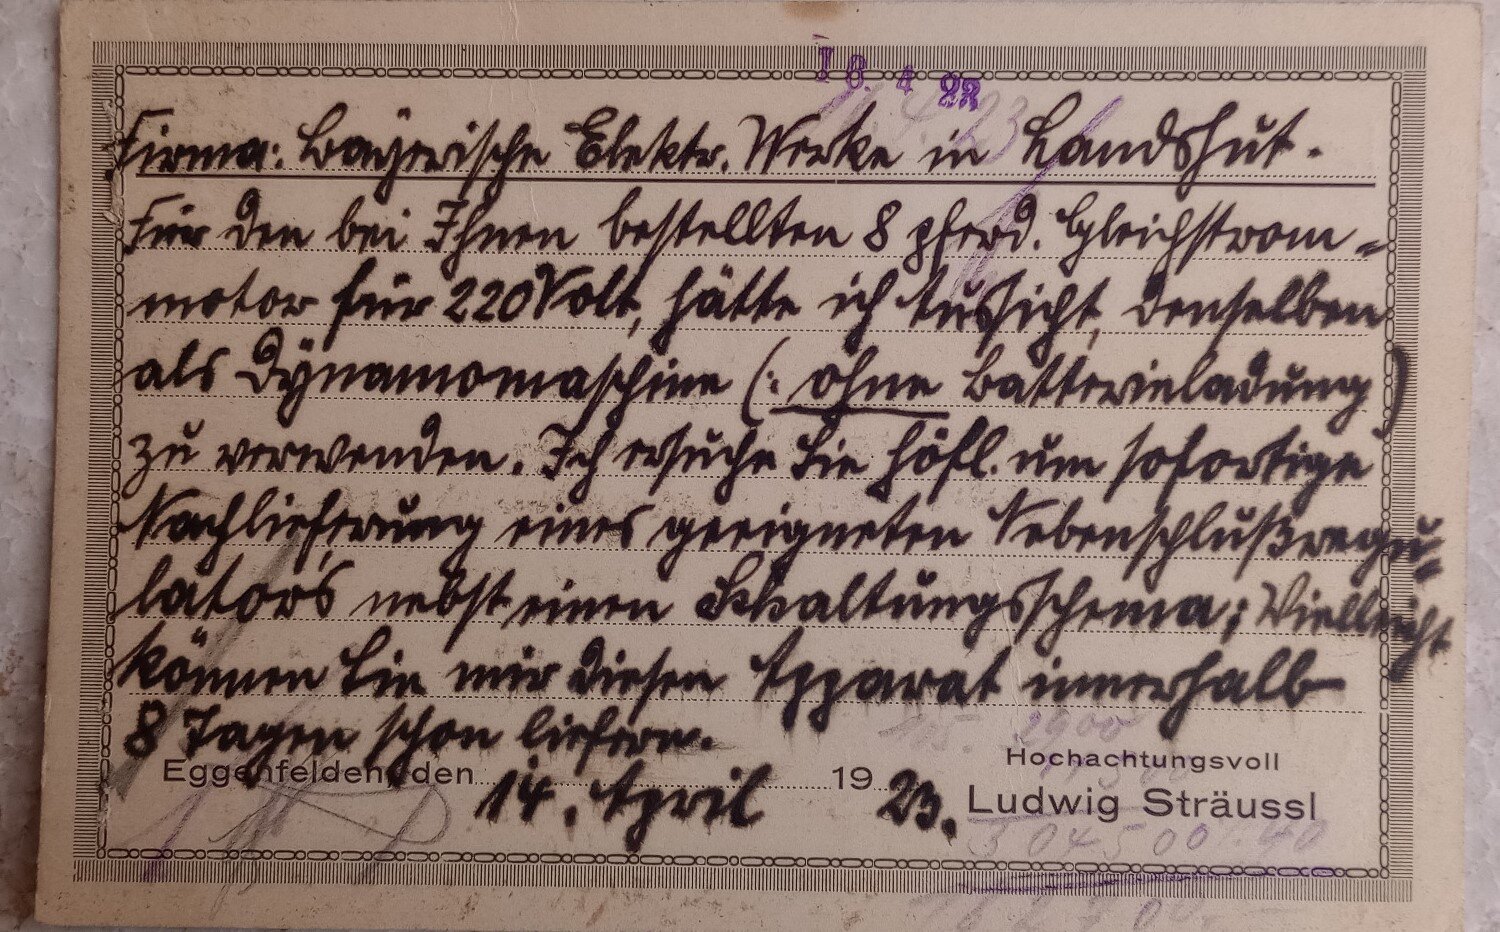 16. 4 23
Firma: Bayerische Elektr. Werke in Landshut.
Für den bei Ihnen bestellten 8 pferd. Gleichstrom=
motor für 220 Volt, hätte ich Aussicht, denselben
als Dynamomaschine (: ohne Batterieladung)
zu verwenden. Ich ersuche Sie höfl. um sofortige
Nachlieferung eines geeigneten Nebenschlußregu=
lators nebst einen Schaltungsschema; Vielleicht
können Sie mir diesen Apparat innerhalb
8 Tagen schon liefern.
Hochachtungsvoll
Eggenfelden, den 14. April 1923.
Ludwig Sträussl